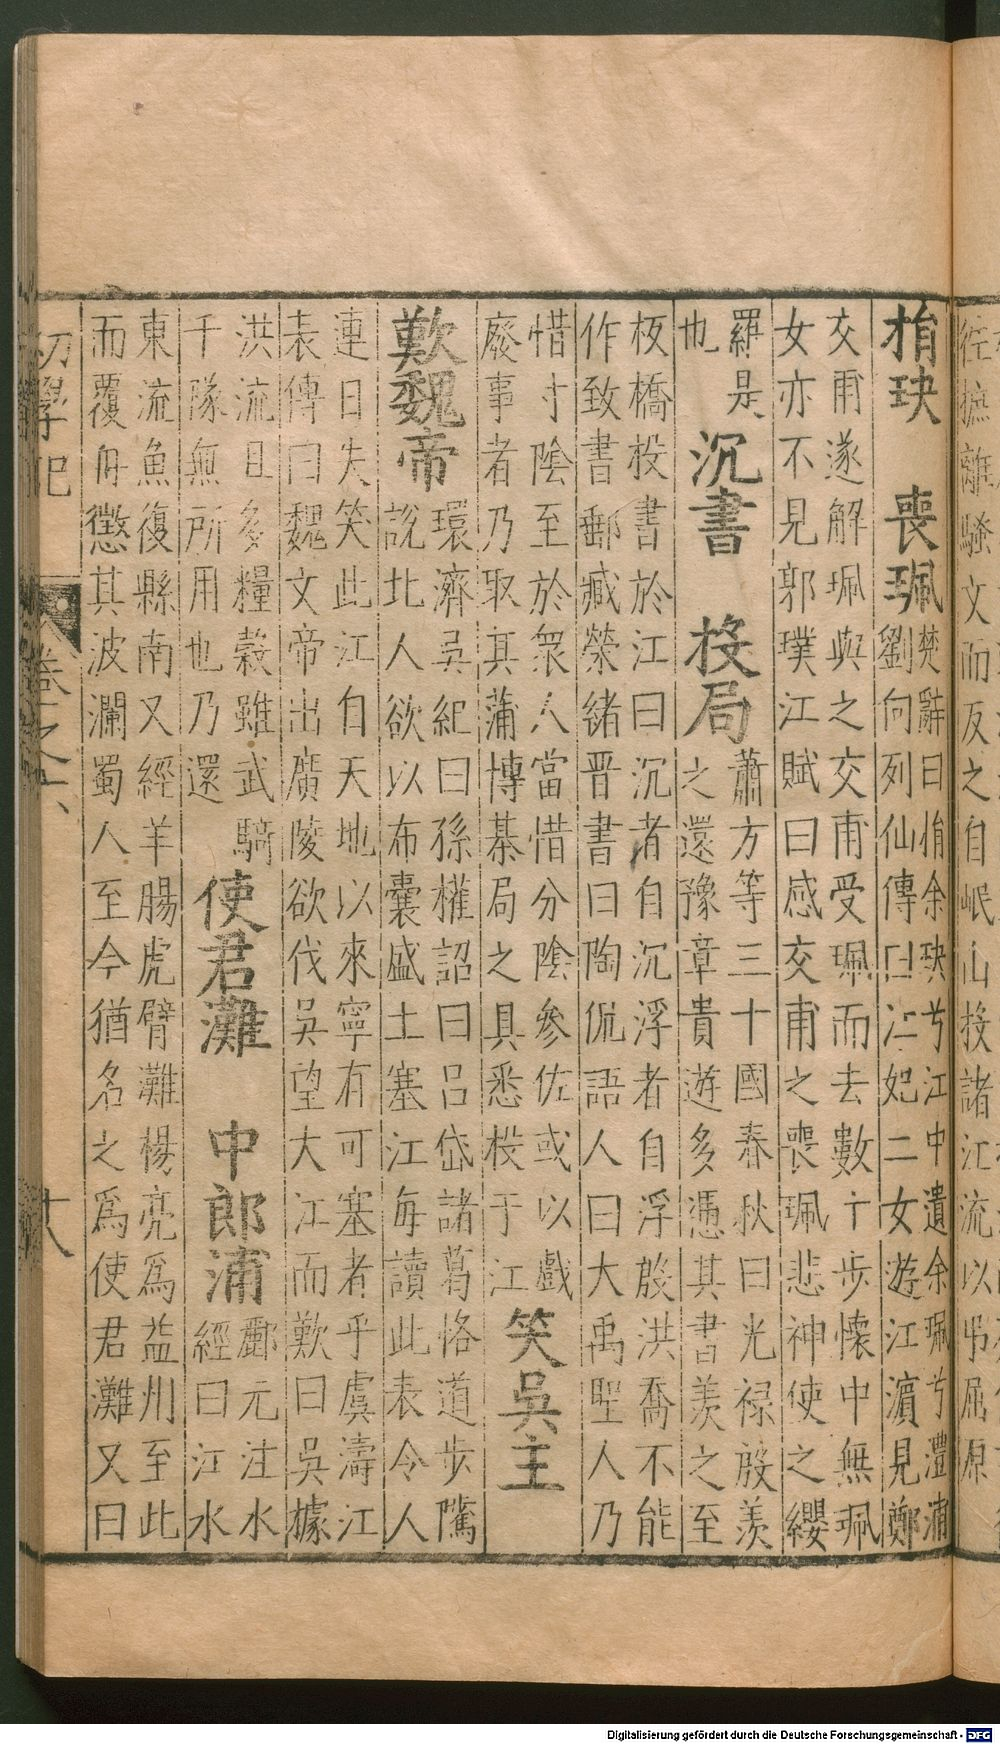 徃摭離騷文而反之自岷山投諸江流以弔屈原
捐玦　喪珮
楚辭曰捐余玦兮江中遺余珮兮澧浦
劉向列仙傳曰江妃二女遊江濵見鄭
交甫遂解珮與之交甫受珮而去數十步懷中無珮
女亦不見郭璞江賦曰感交甫之喪珮悲神使之纓
羅是
也
沉書　投局
蕭方等三十國春秋曰光禄殷羨
之還豫章貴遊多憑其書羨之至
板橋投書於江曰沉者自沉浮者自浮殷洪喬不能
作致書郵臧榮緒晋書曰陶侃語人曰大禹聖人乃
惜寸陰至於衆人當惜分陰參佐或以戲
廢事者乃取其蒲博棊局之具悉投于江
笑吳主
歎魏帝
環濟吳紀曰孫權詔曰吕岱諸葛恪道步隲
說北人欲以布囊盛土塞江每讀此表令人
連日失笑此江自天地以來寧有可塞者乎虞濤江
表傳曰魏文帝出廣陵欲伐吳望大江而歎曰吳據
洪流且多糧榖雖武騎
千隊無所用也乃還
使君灘　中郎浦
酈元注水
經曰江水
東流魚復縣南又經羊腸虎臂灘楊亮爲益州至此
而覆舟懲其波瀾蜀人至今猶名之爲使君灘又曰
初學记　卷之六　十八
Digitalisierung gefördert durch die Deutsche Forschungsgemeinschaft - DFG